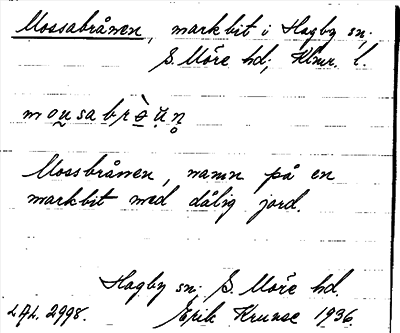 Mossabrånen, markbit i Hagby sn;
S. Möre hd; Klmr. l.
Mossbrånen, namn på en
markbit med dålig jord.
Hagby sn. S. Möre hd
L.A.L. 2998. Erik Krusse 1936